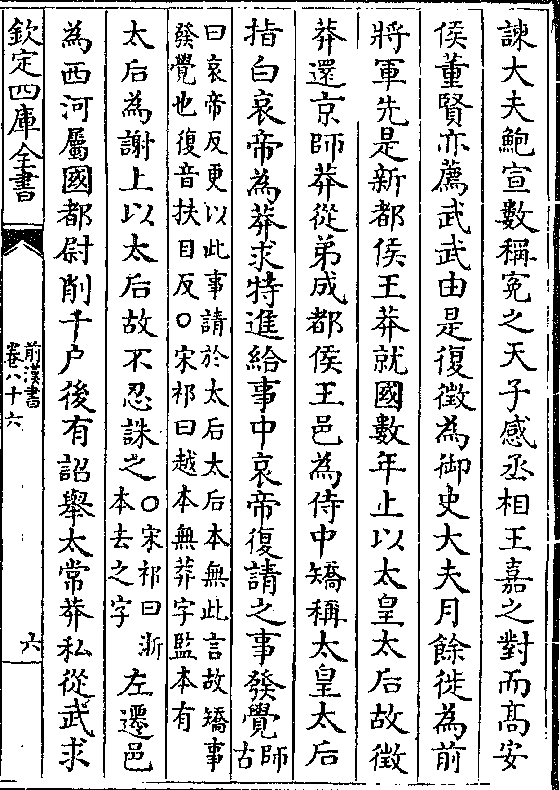 諫大夫鮑宣數稱冤之天子感丞相王嘉之對而髙安
侯董賢亦薦武武由是復徴為御史大夫月餘徙為前
將軍先是新都侯王莽就國數年上以太皇太后故徴
莽還京師莽從弟成都侯王邑為侍中矯稱太皇太后
指白哀帝為莽求特進給事中哀帝復請之事發覺師古
曰哀帝反更以此事請於太后太后本無此言故矯事
發覺也復音扶目反○宋祁曰越本無莽字監本有
太后為謝上以太后故不忍誅之○宋祁曰浙本去之字左遷邑
為西河屬國都尉削千户後有詔舉太常莽私從武求
欽定四庫全書
前漢書
卷八十六
六